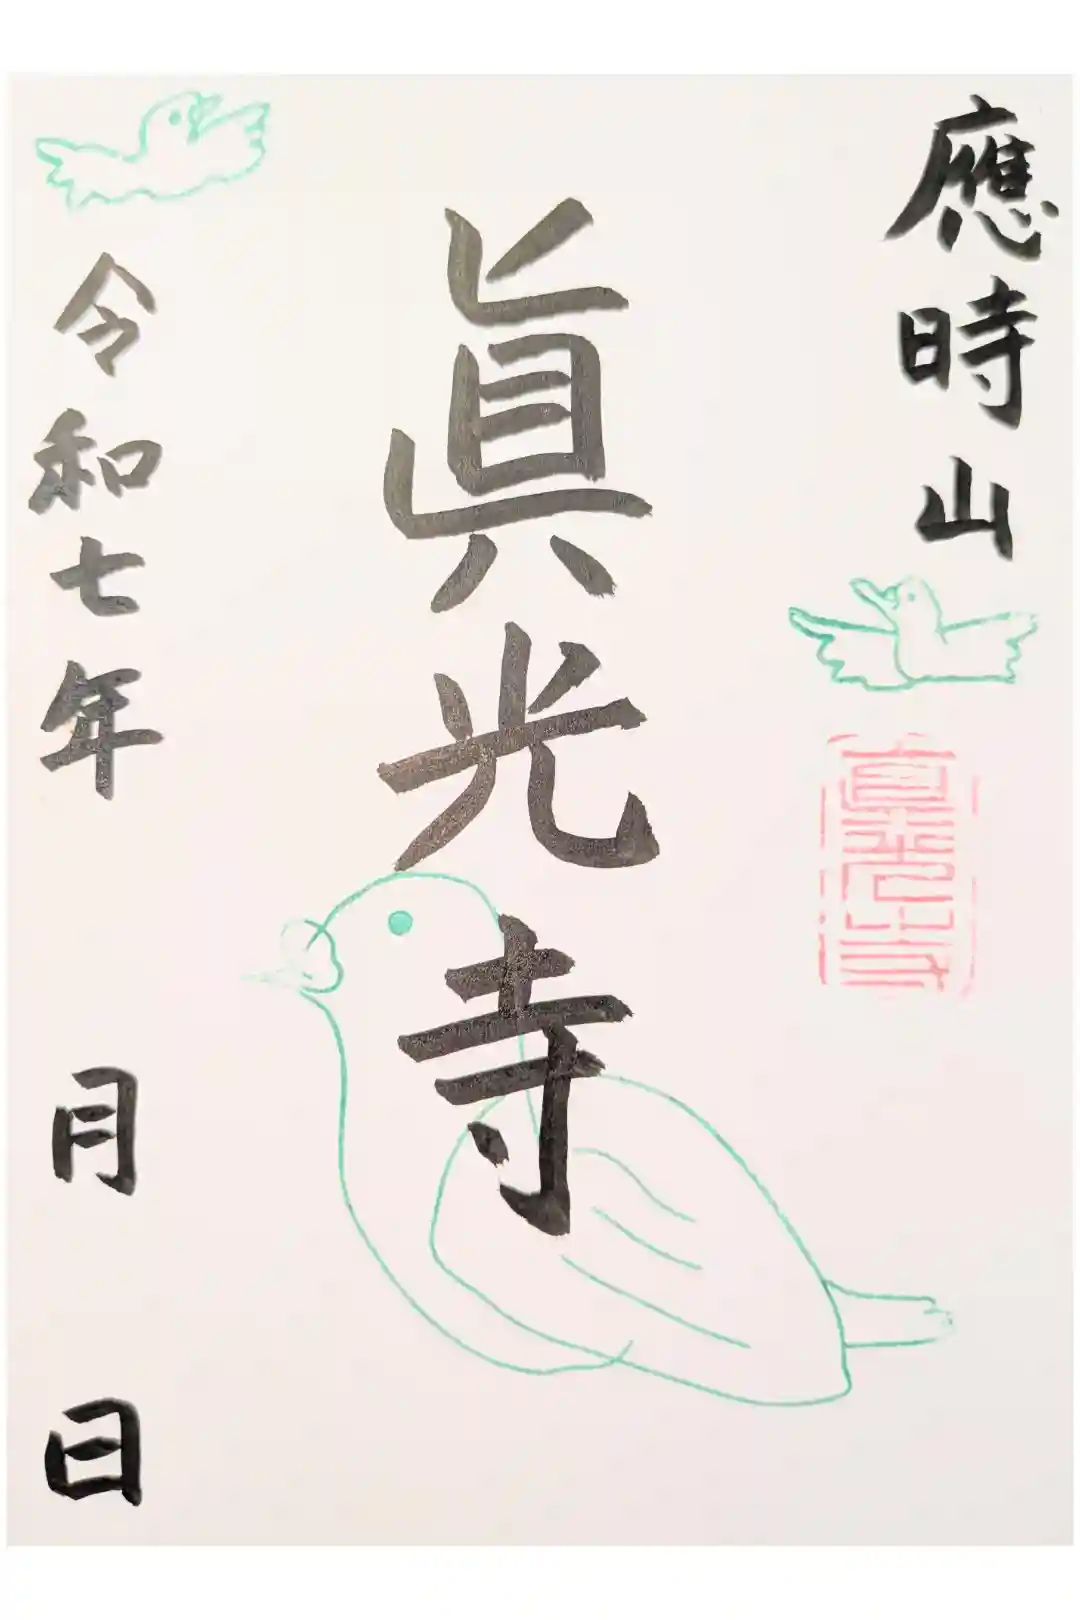 應時山
眞光寺
令和七年 月 日
眞光寺